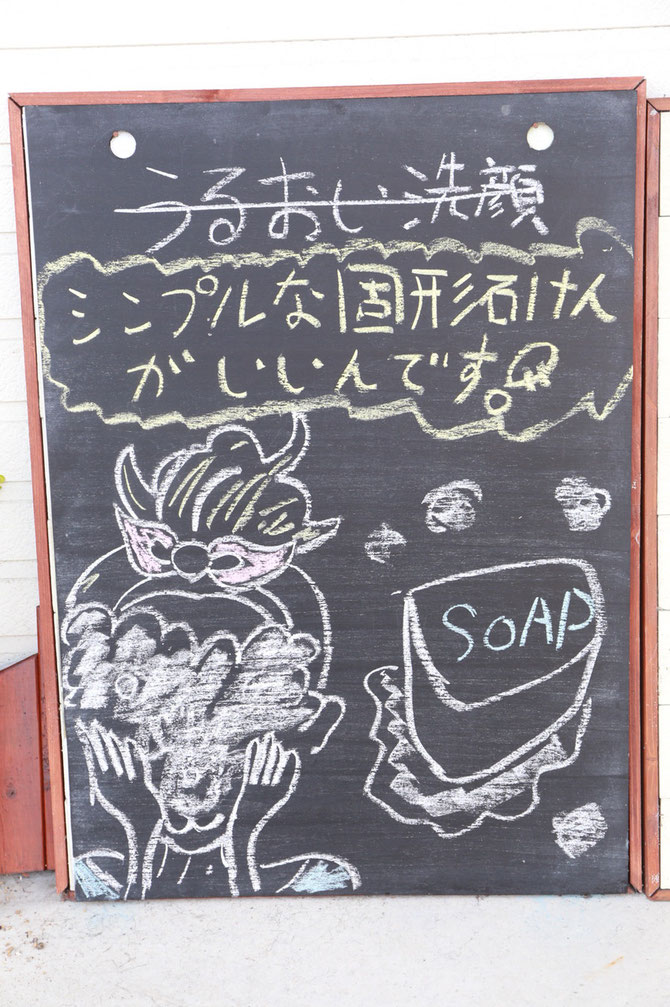 うるおい洗顔
シンプルな固形石けん
がいいんです。
SOAP